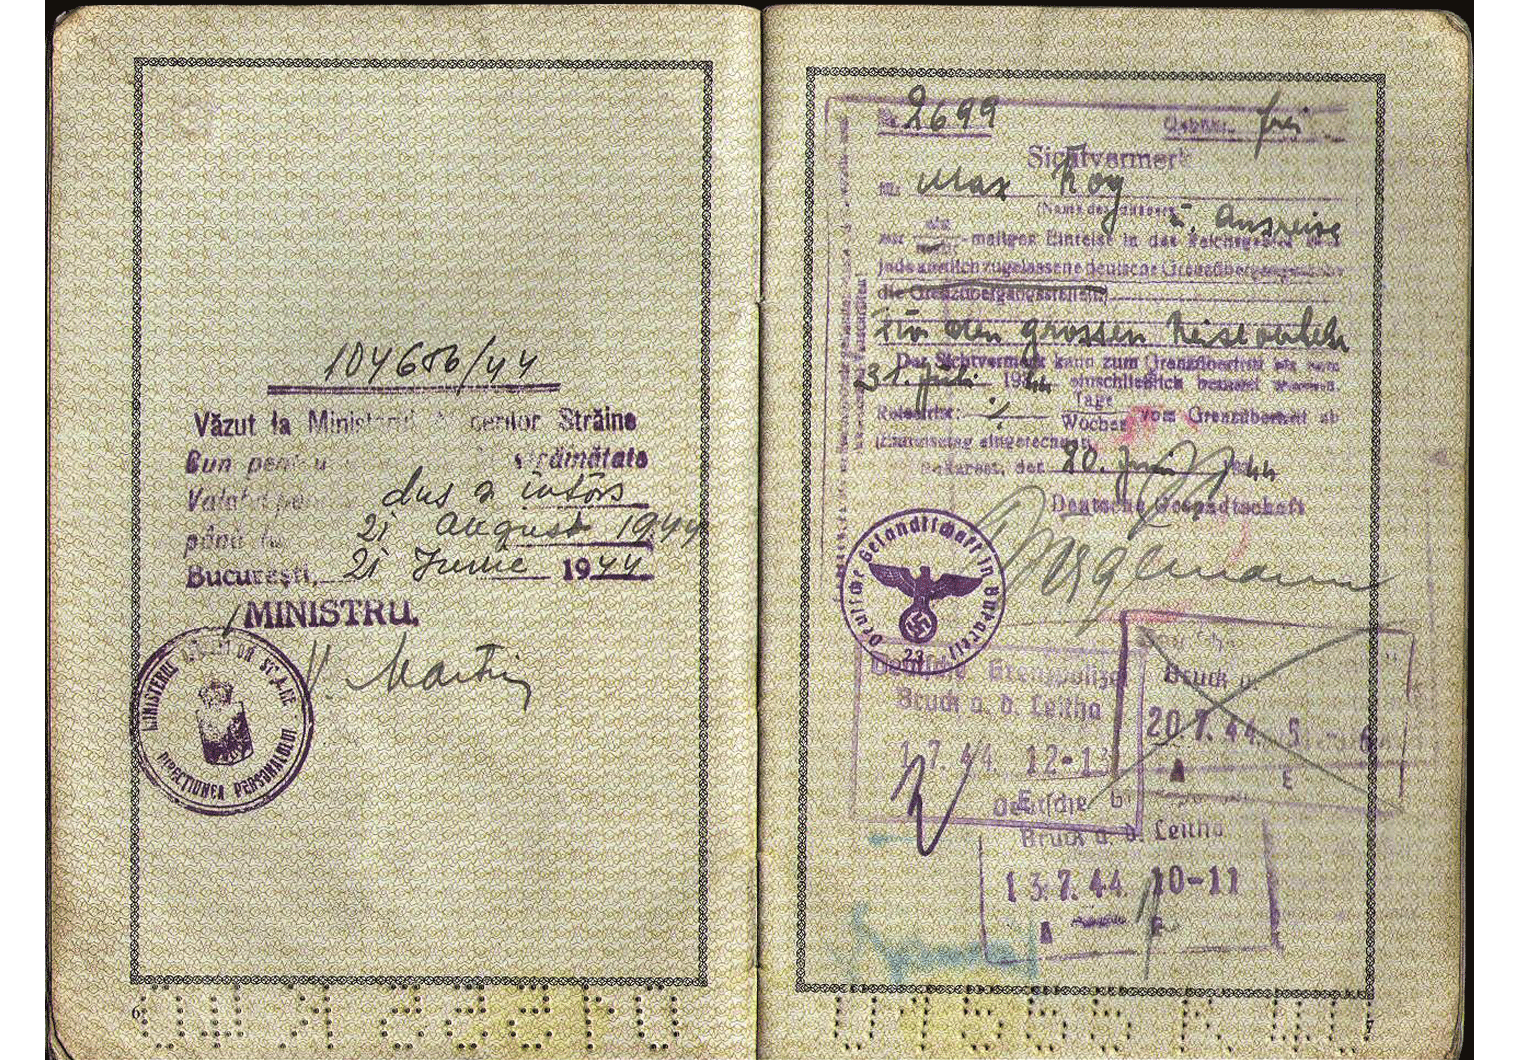 104686/44
Văzut la Ministerul Afacerilor Străine
Bun pentru străinătate
Valabil pentru dus și întors
până la 21 August 1944
București, 21 Iunie 1944
MINISTRU,
V. Martin
MINISTERUL AFACERILOR STRĂINE
DIRECȚIUNEA PERSONALULUI
6
Nr. 2699
Gebühr: frei
Sichtvermerk
für Max
(Name des Inhabers) u. Ausreise
zur ein-maligen Einreise in das Reichsgebiet über
jede amtlich zugelassene deutsche Grenzübergangsstelle
die Grenzübergangsstelle(n)
für den grossen Reiseverkehr
Der Sichtvermerk kann zum Grenzübertritt bis zum
31. Juli 1944 einschließlich benutzt werden.
Tage
Wochen vom Grenzübertritt ab
(Einreisetag eingerechnet).
Bukarest, den 20. Juni 1944
Deutsche Gesandtschaft
Deutsche Gesandtschaft in Bukarest
23
Deutsche Grenzpolizei
Bruck a. d. Leitha
1.7.44 12-13
E
Bruck a.
20.7.44. 5 - 6
A E
Deutsche
Bruck a. d. Leitha
13.7.44. 10-11
A E
7